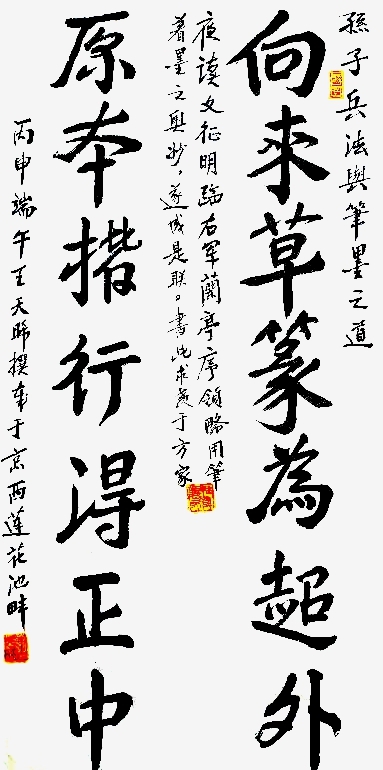 孫子兵法與筆墨之道
向來草篆為超外
夜讀文征明臨右军蘭亭序領略用筆
着墨之奥妙，遂成是联。書此求意于方家
原本揩行得正中
丙申端午王天晞撰奉于京西蓮花池畔